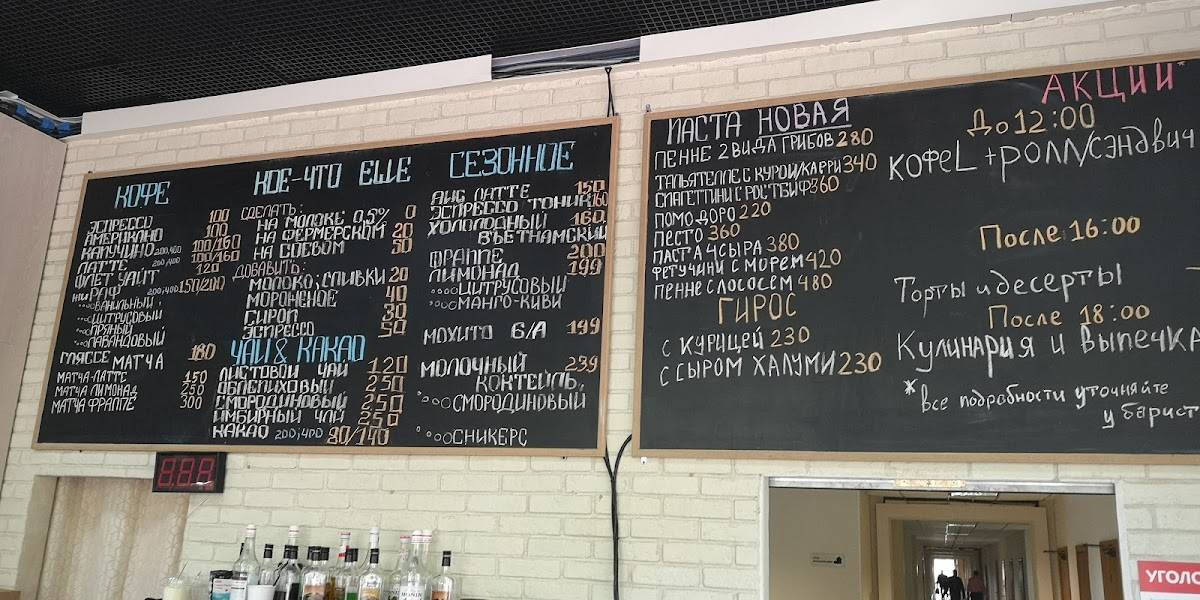 КОФЕ
ЭСПРЕССО 100
АМЕРИКАНО 100
КАПУЧИНО 200,400 100/160
ЛАТТЕ 200,400 100/160
ФЛЕТ УАЙТ 120
РАФ 200,400 150/200
ВАНИЛЬНЫЙ
ЦИТРУСОВЫЙ
ПРЯНЫЙ
ЛАВАНДОВЫЙ
ГЛЯССЕ 180
МАТЧА
МАТЧА-ЛАТТЕ 150
МАТЧА ЛИМОНАД 250
МАТЧА ФРАППЕ 300
КОЕ-ЧТО ЕЩЕ
СДЕЛАТЬ:
НА МОЛОКЕ 0,5% 0
НА ФЕРМЕРСКОМ 20
НА СОЕВОМ 50
ДОБАВИТЬ:
МОЛОКО; СЛИВКИ 20
МОРОЖЕНОЕ 40
СИРОП 30
ЭСПРЕССО 50
ЧАЙ & КАКАО
ЛИСТОВОЙ ЧАЙ 120
ОБЛЕПИХОВЫЙ 250
СМОРОДИНОВЫЙ 250
ИМБИРНЫЙ ЧАЙ 250
КАКАО 200,400 80/140
СЕЗОННОЕ
АЙС ЛАТТЕ 150
ЭСПРЕССО ТОНИК 160
ХОЛОДНЫЙ 160
ВЬЕТНАМСКИЙ
ФРАППЕ 200
ЛИМОНАД 199
ЦИТРУСОВЫЙ
МАНГО-КИВИ
МОХИТО Б/А 199
МОЛОЧНЫЙ 239
КОКТЕЙЛЬ,
СМОРОДИНОВЫЙ
СНИКЕРС
ПАСТА НОВАЯ
ПЕННЕ 2 ВИДА ГРИБОВ 280
ТАЛЬЯТЕЛЛЕ С КУРОЙ/КАРРИ 340
СПАГЕТТИНИ С РОСТБИФ 360
ПОМОДОРО 220
ПЕСТО 360
ПАСТА 4 СЫРА 380
ФЕТУЧИНИ С МОРЕМ 420
ПЕННЕ С ЛОСОСЕМ 480
ГИРОС
С КУРИЦЕЙ 230
С СЫРОМ ХАЛУМИ 230
АКЦИИ*
До 12:00
КОФЕ L + РОЛЛ/СЭНДВИЧ
После 16:00
Торты и десерты
После 18:00
Кулинария и выпечка
*все подробности уточняйте
у барист
УГОЛО